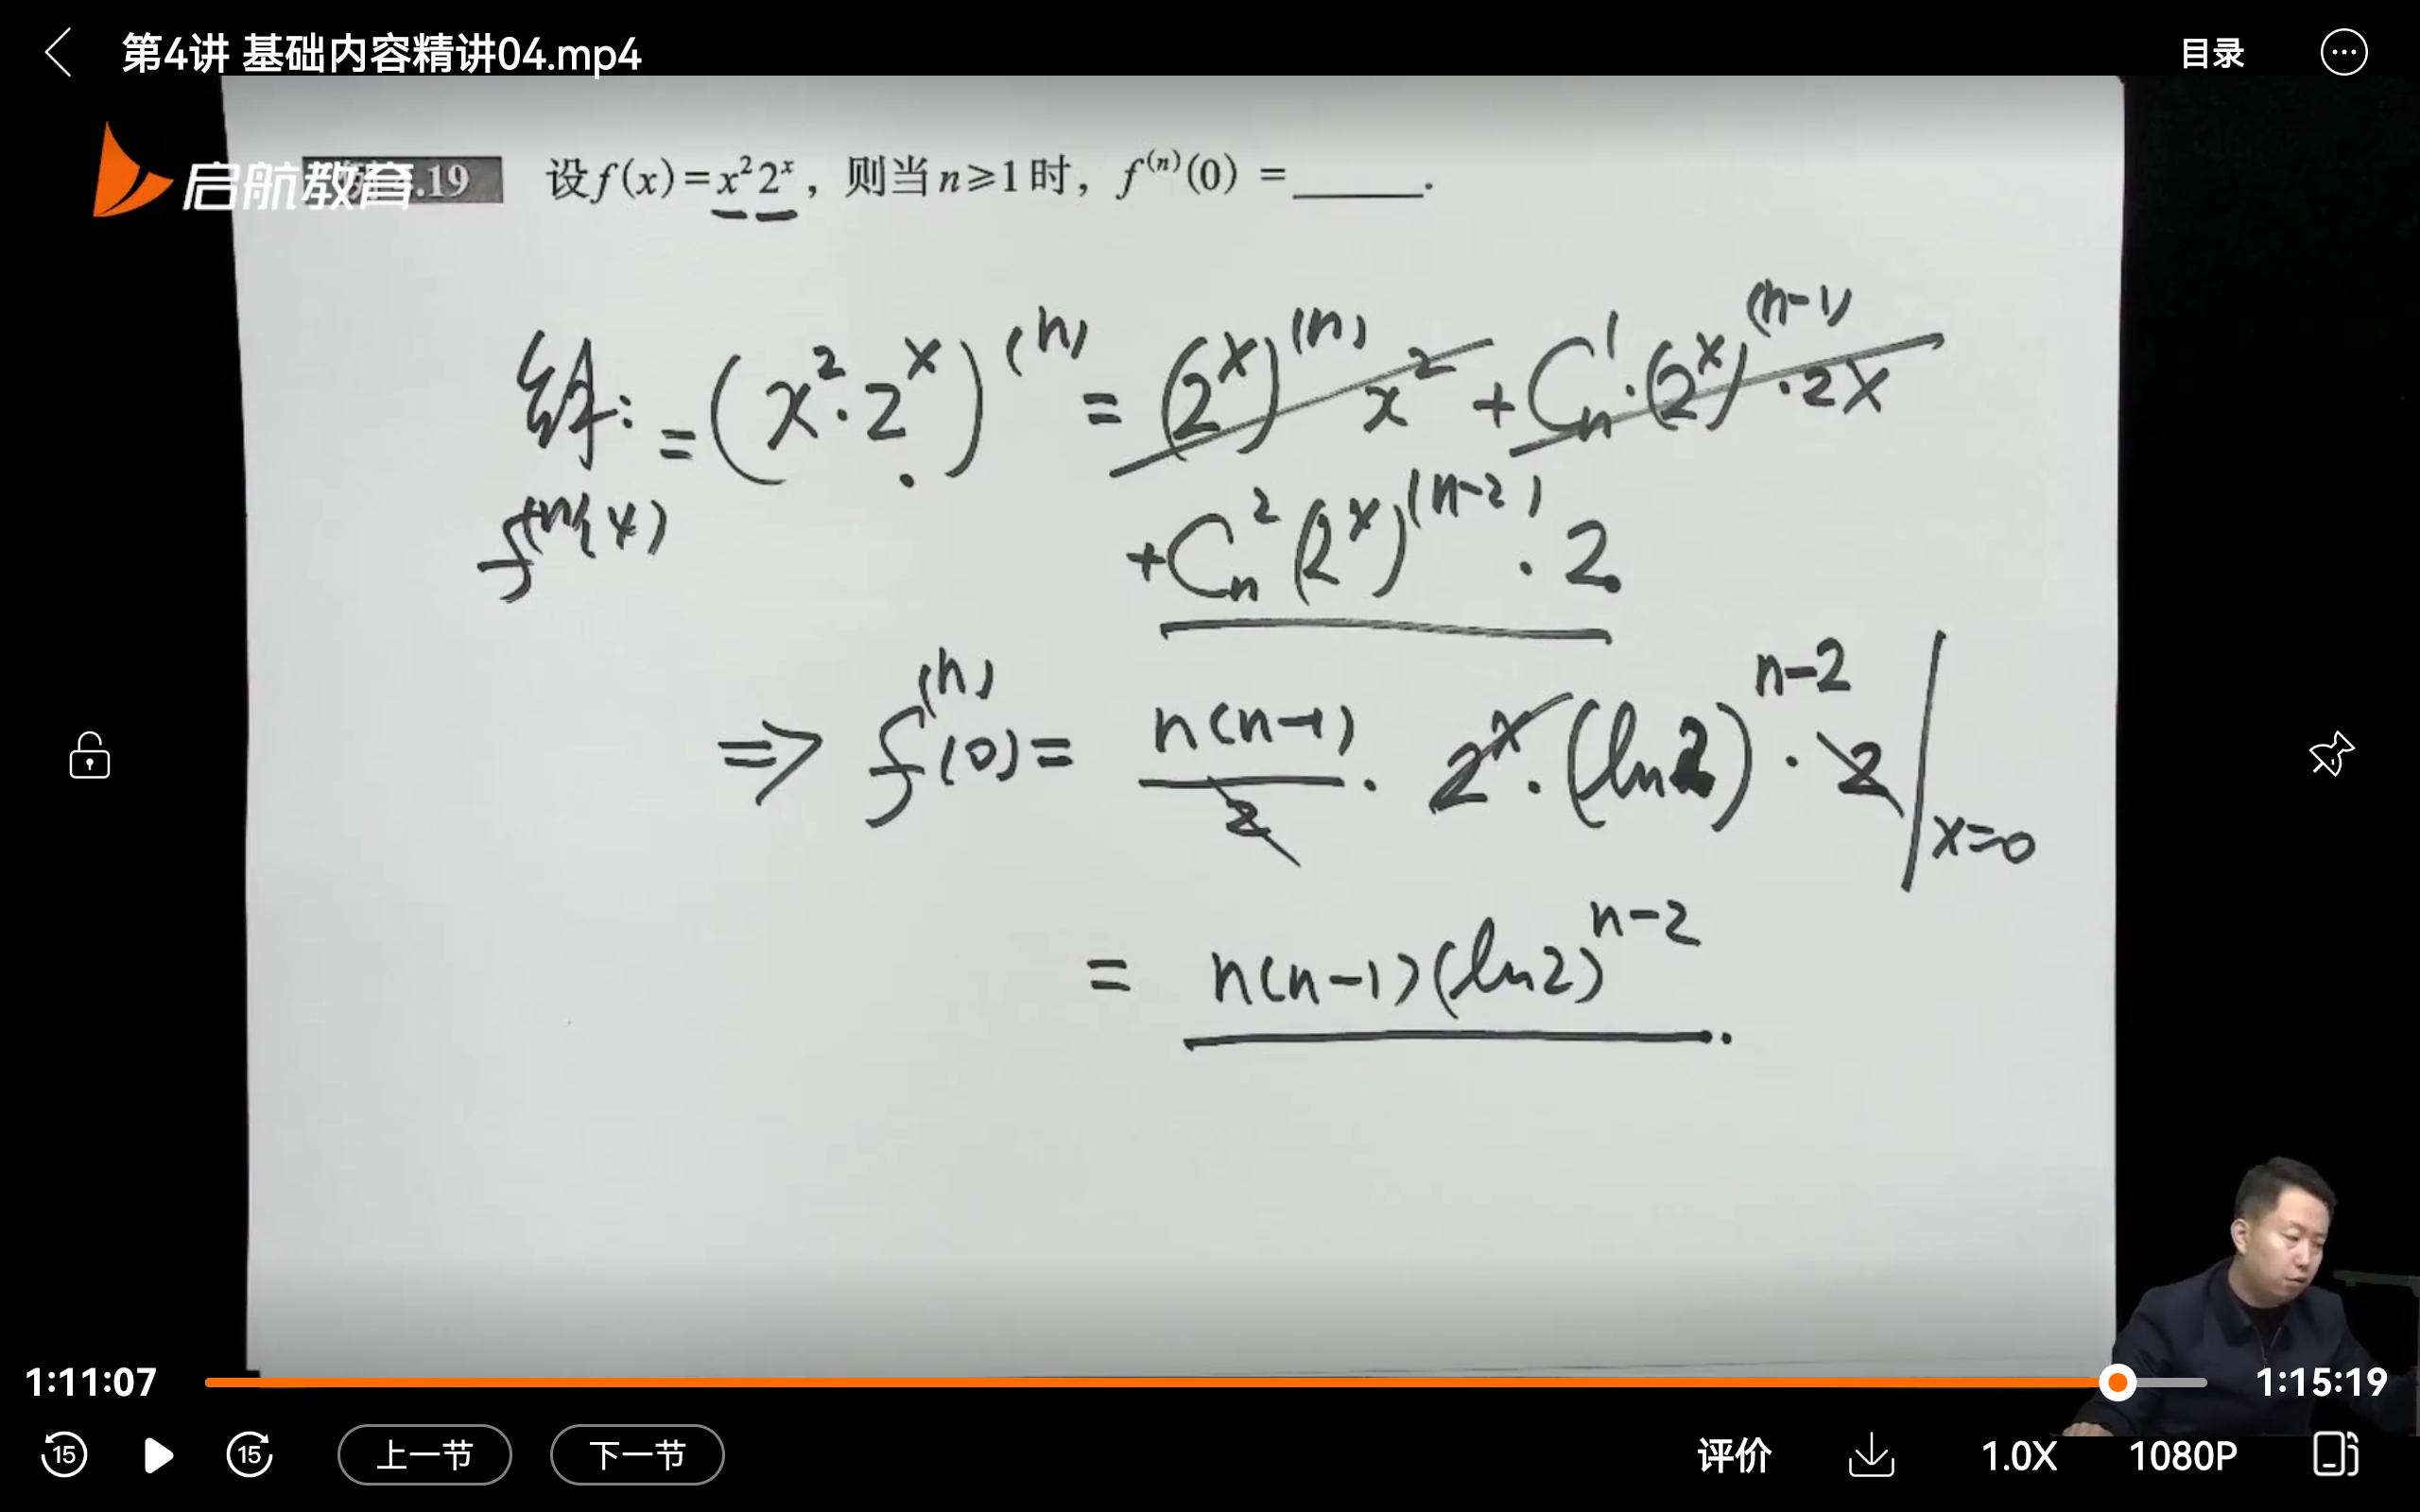 第4讲 基础内容精讲04.mp4
目录
启航教育
.19 设f(x)=x²2ˣ，则当n≥1时，f⁽ⁿ⁾(0) =______.
解: = (x²·2ˣ)⁽ⁿ⁾ = (2ˣ)⁽ⁿ⁾ x² + Cₙ¹·(2ˣ)⁽ⁿ⁻¹⁾·2x
f⁽ⁿ⁾(x)
+Cₙ²(2ˣ)⁽ⁿ⁻²⁾·2
⇒ f⁽ⁿ⁾(0) = n(n-1)/2 · 2ˣ·(ln2)ⁿ⁻²·2 |x=0
= n(n-1)(ln2)ⁿ⁻².
1:11:07
1:15:19
15
15
上一节
下一节
评价
1.0X
1080P